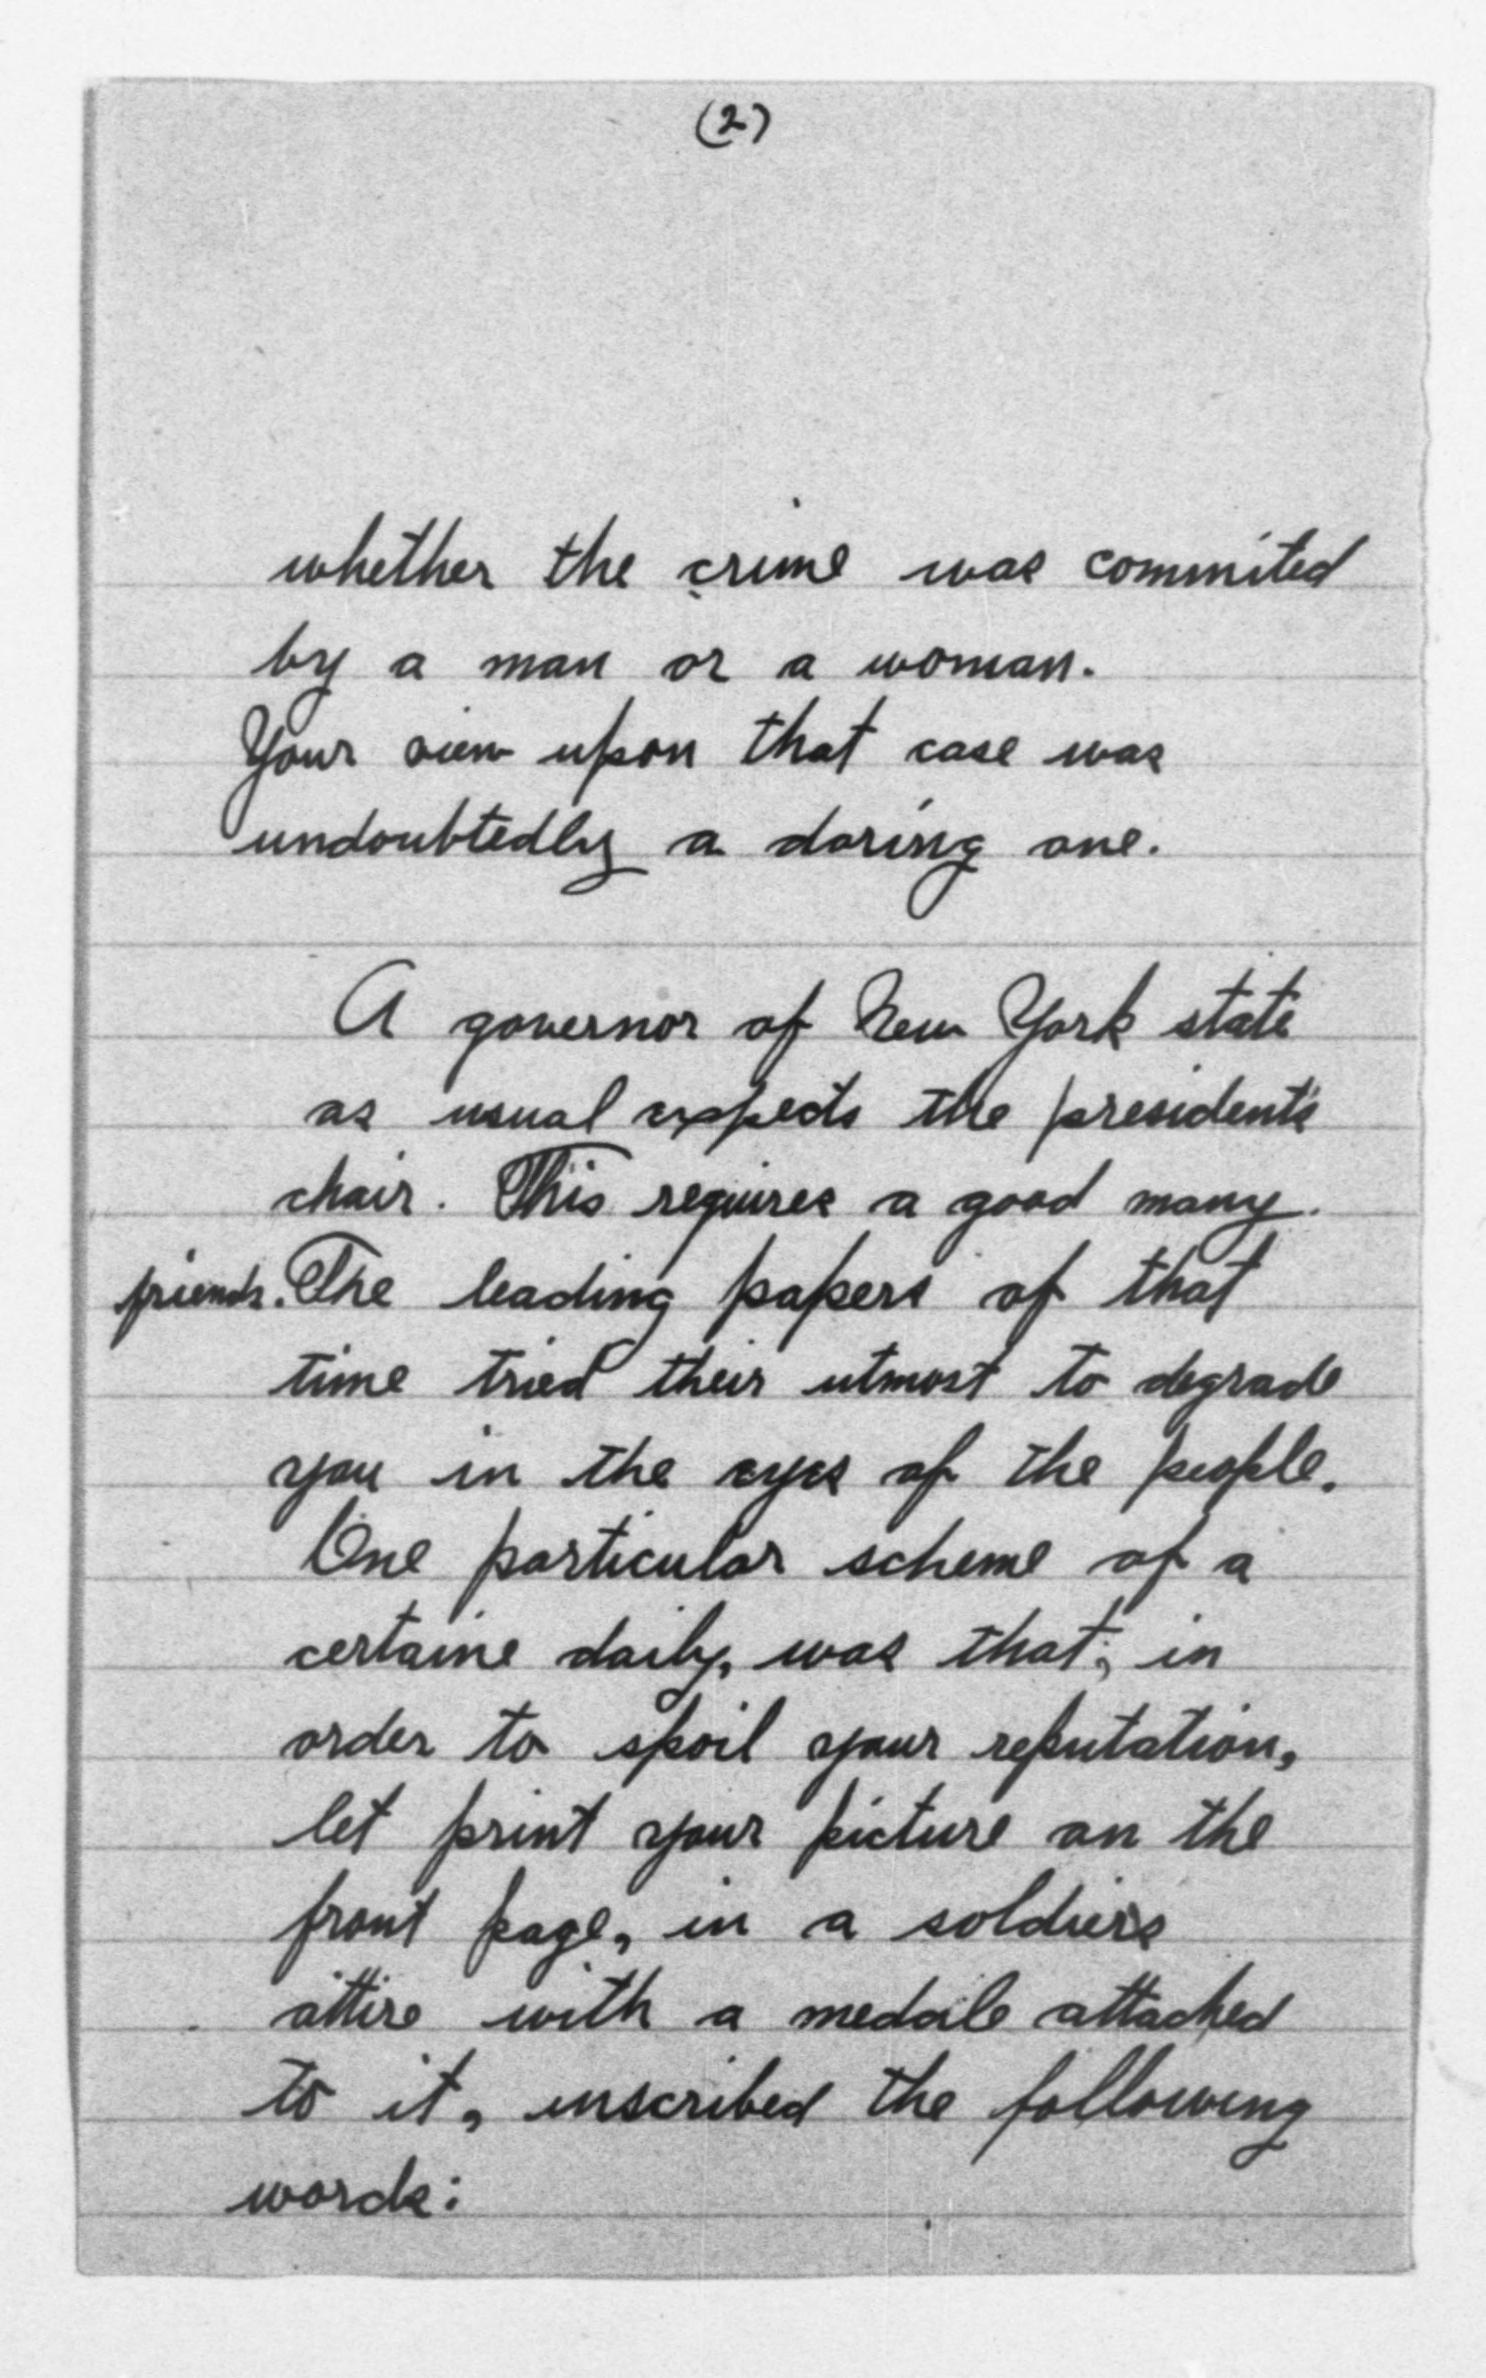 (2)
whether the crime was commited
by a man or a woman.
Your view upon that case was
undoubtedly a daring one.
A governor of New York state
as usual expects the president's
chair. This requires a good many
friends. The leading papers of that
time tried their utmost to degrade
you in the eyes of the people.
One particular scheme of a
certaine daily, was that; in
order to spoil your reputation,
let print your picture on the
front page, in a soldiers
attire with a medaile attached
to it, inscribed the following
words: